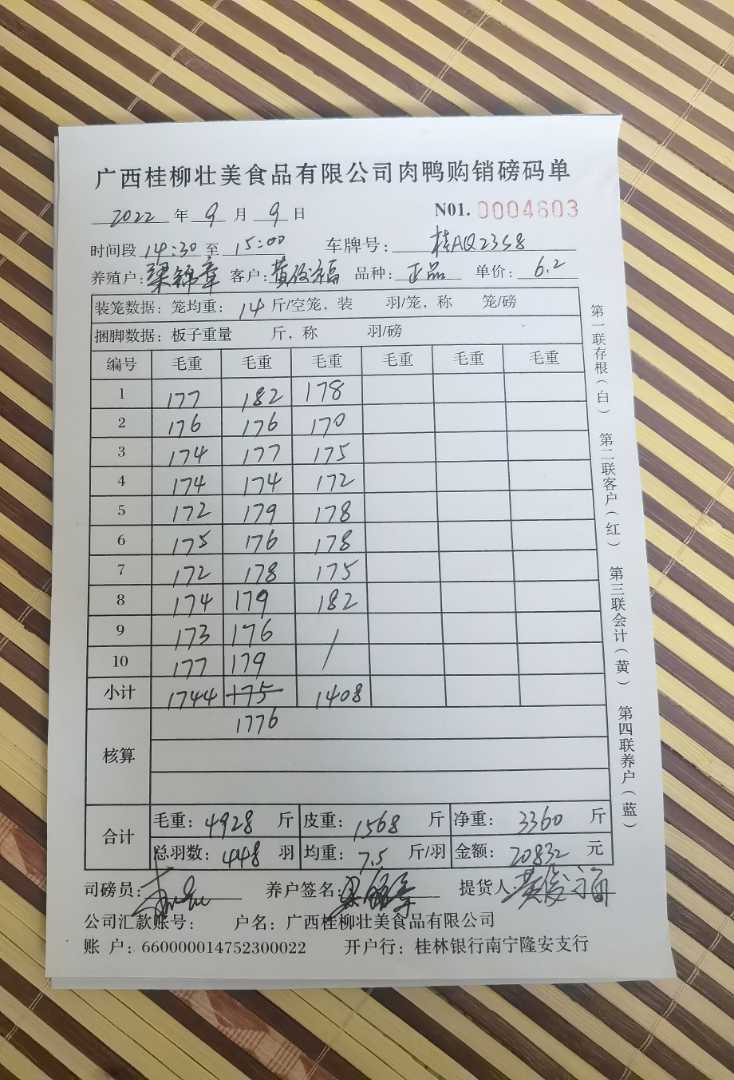 广西桂柳壮美食品有限公司肉鸭购销磅码单
2022 年 9 月 9 日 N01. 0004603
时间段 14:30 至 15:00 车牌号: 桂AQ2358
养殖户: 梁锦章 客户: 黄俊福 品种: 正品 单价: 6.2
装笼数据: 笼均重: 14 斤/空笼, 装 羽/笼, 称 笼/磅
捆脚数据: 板子重量 斤, 称 羽/磅
编号 毛重 毛重 毛重 毛重 毛重 毛重
1 177 182 178
2 176 176 170
3 174 177 175
4 174 174 172
5 172 179 178
6 175 176 178
7 172 178 175
8 174 179 182
9 173 176 /
10 177 179 /
小计 1744 175 1408
核算 1776
合计 毛重: 4928 斤 皮重: 1568 斤 净重: 3360 斤
总羽数: 448 羽 均重: 7.5 斤/羽 金额: 20832 元
司磅员: 养户签名: 梁锦章 提货人: 黄俊福
公司汇款账号: 户名: 广西桂柳壮美食品有限公司
账 户: 660000014752300022 开户行: 桂林银行南宁隆安支行
第一联存根(白) 第二联客户(红) 第三联会计(黄) 第四联养户(蓝)